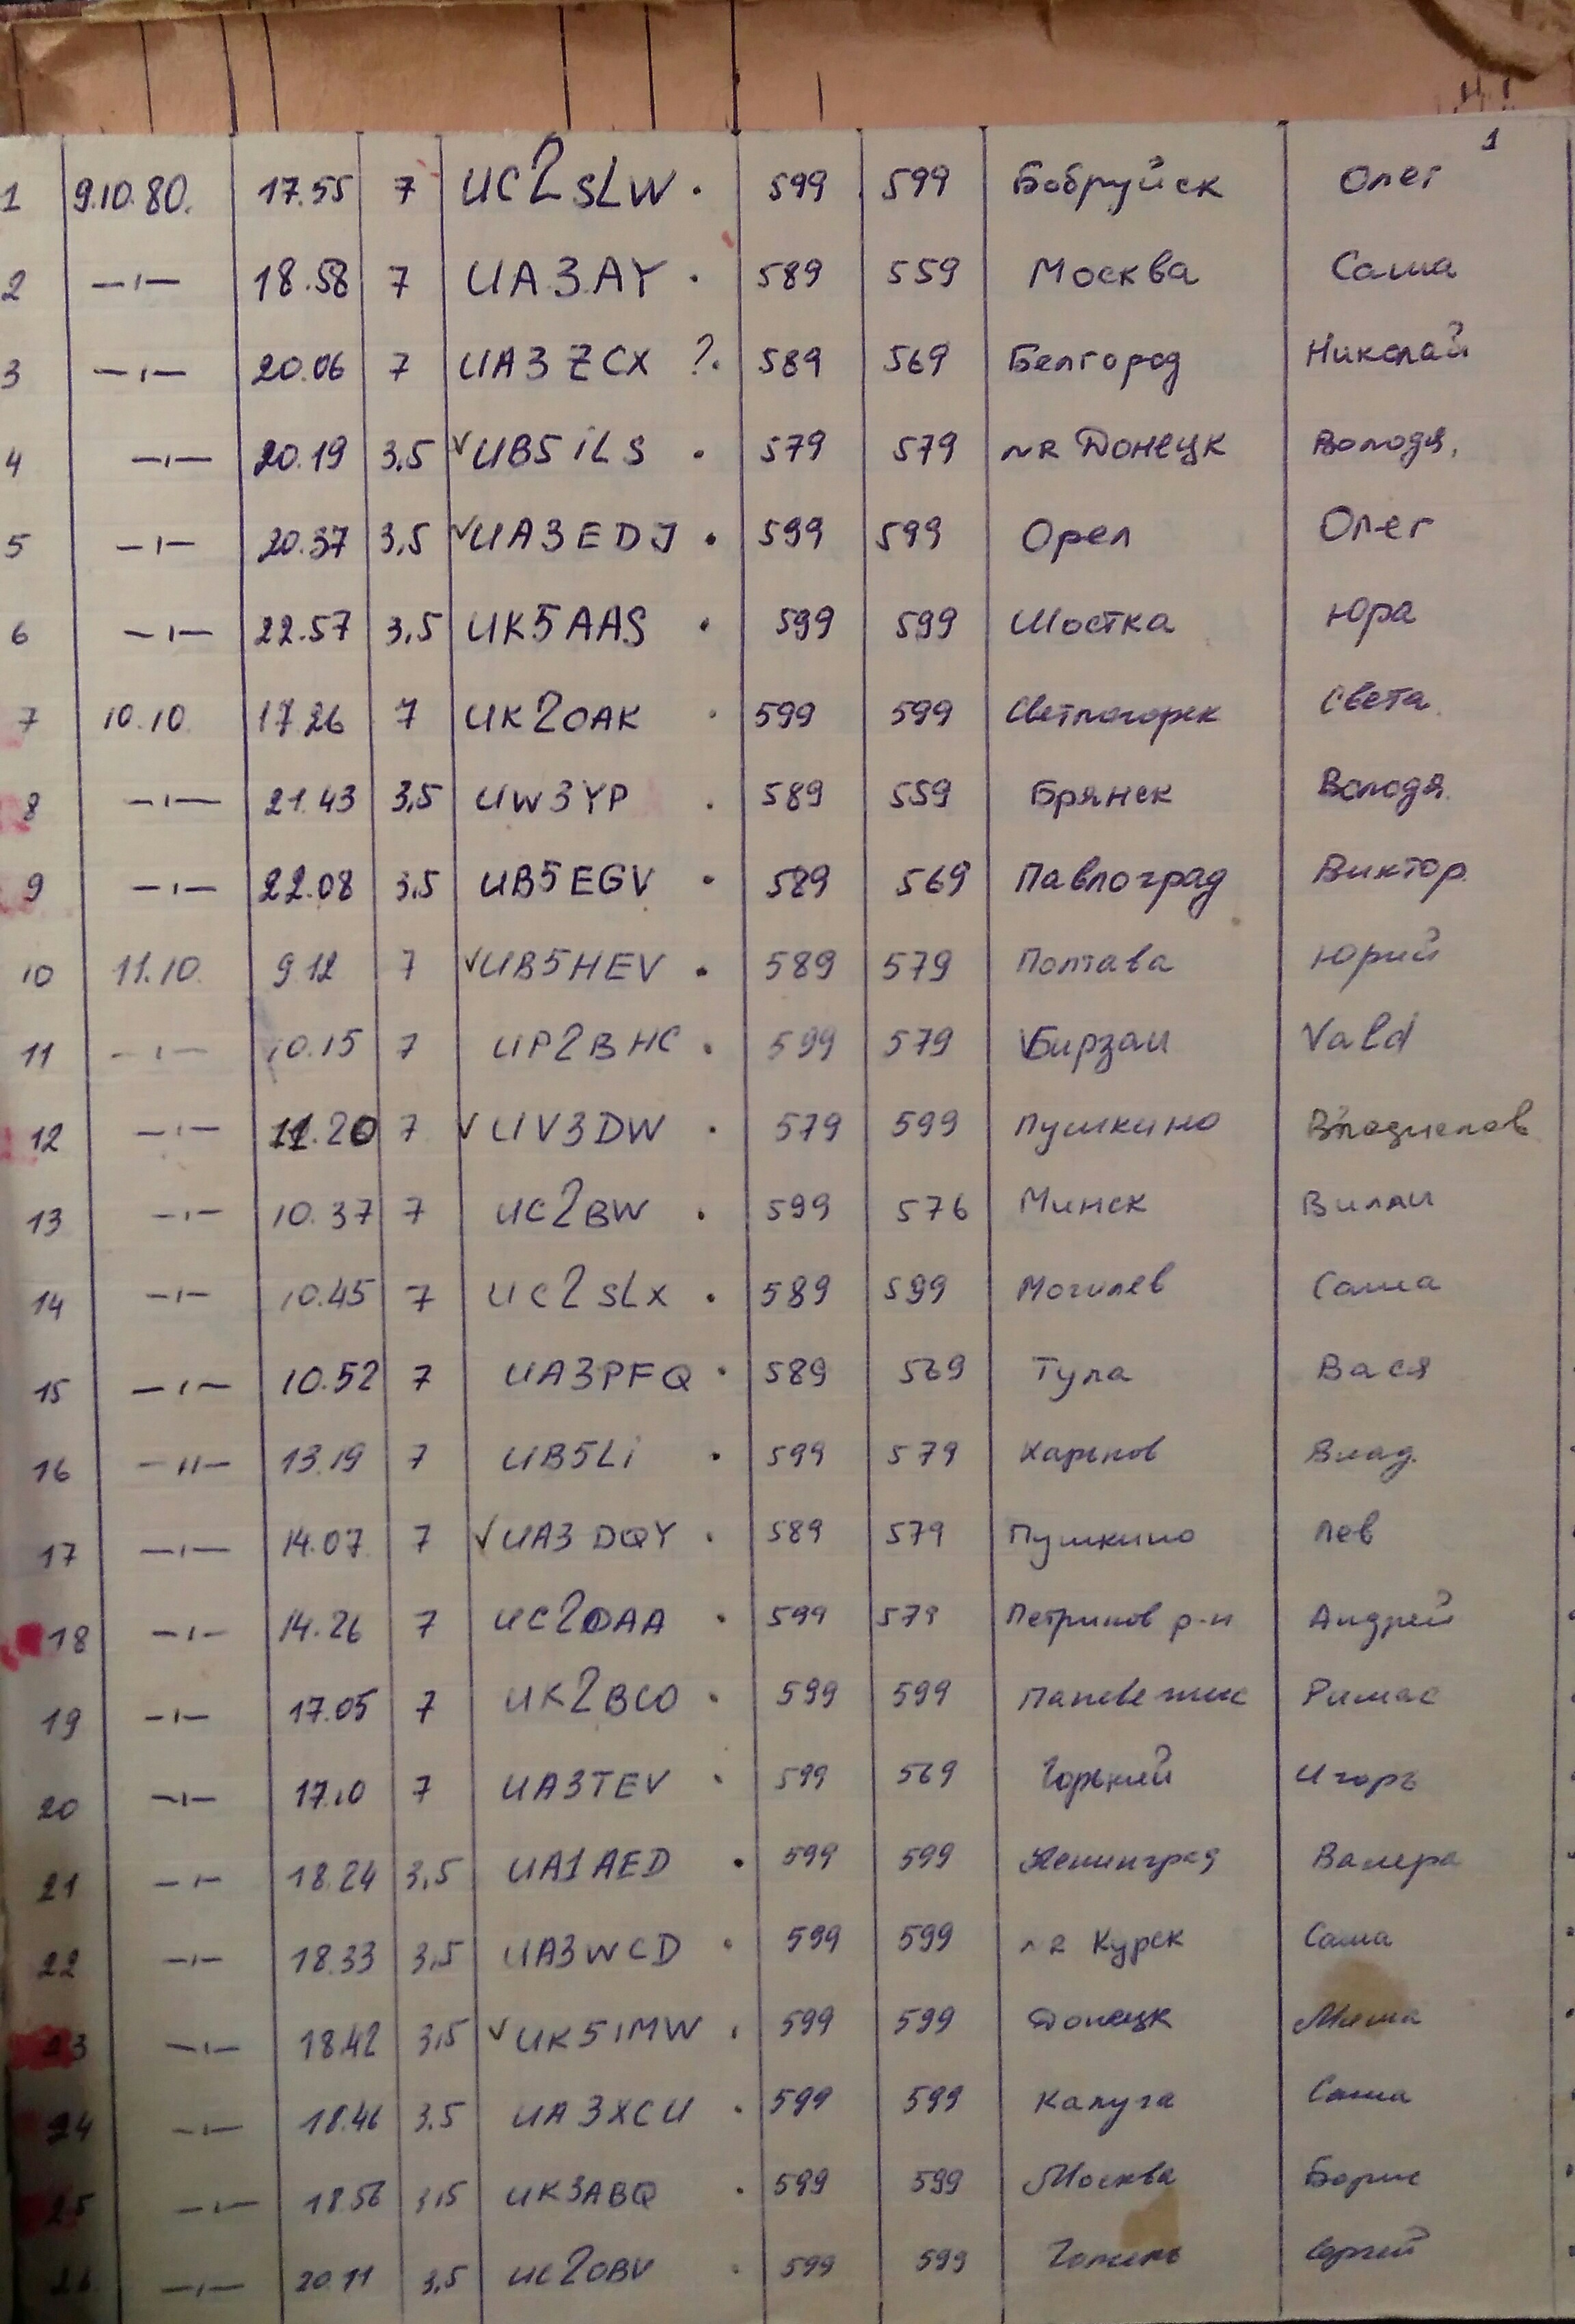 1
1 9.10.80. 17.55 7 UC2SLW. 599 599 Бобруйск Олег
2 —ı— 18.58 7 UA3AY. 589 559 Москва Саша
3 —ı— 20.06 7 UA3ZCX ?. 589 569 Белгород Николай
4 —ı— 20.19 3,5 ✓UB5iLS. 579 579 nR Донецк Володя.
5 —ı— 20.37 3,5 ✓UA3EDJ. 599 599 Орел Олег
6 —ı— 22.57 3,5 UK5AAS. 599 599 Шостка Юра
7 10.10. 17.26 7 UK2OAK. 599 599 Светлогорск Света
8 —ı— 21.43 3,5 UW3YP. 589 559 Брянск Володя.
9 —ı— 22.08 3,5 UB5EGV. 589 569 Павлоград Виктор
10 11.10. 9.12 7 ✓UB5HEV. 589 579 Полтава Юрий
11 —ı— 10.15 7 UP2BHC. 599 579 Бирзаи Vald
12 —ı— 11.20 7 ✓UV3DW. 579 599 Пушкино
13 —ı— 10.37 7 UC2BW. 599 576 Минск Вилли
14 —ı— 10.45 7 UC2SLX. 589 599 Могилев Саша
15 —ı— 10.52 7 UA3PFQ. 589 569 Тула Вася
16 —ıı— 13.19 7 UB5Li. 599 579 Харьков Влад.
17 —ı— 14.07 7 ✓UA3DQY. 589 579 Пушкино Лев
18 —ı— 14.26 7 UC2OAA. 599 579 Петриков р-н Андрей
19 —ı— 17.05 7 UK2BCO. 599 599 Паневежис Римас
20 —ı— 17.10 7 UA3TEV. 599 569 Горький Игорь
21 —ı— 18.24 3,5 UA1AED. 599 599 Ленинград Валера
22 —ı— 18.33 3,5 UA3WCD. 599 599 nR Курск Саша
23 —ı— 18.42 3,5 ✓UK5IMW. 599 599 Донецк Миша
24 —ı— 18.46 3.5 UA3XCU. 599 599 Калуга Саша
25 —ı— 18.56 3,5 UK3ABQ. 599 599 Москва Борис
26 —ı— 20.11 3,5 UC2OBV. 599 599 Гомель Сергей